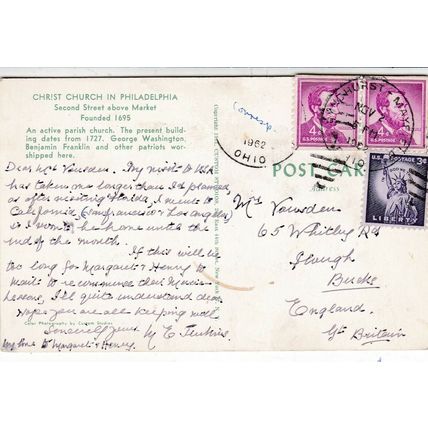 CHRIST CHURCH IN PHILADELPHIA
Second Street above Market
Founded 1695
An active parish church. The present build-
ing dates from 1727. George Washington,
Benjamin Franklin and other patriots wor-
shipped here.
Dear Mrs My visit to USA
has taken me longer than I'd planned
as after visiting Florida, I went to
California (San Francisco & Los Angeles)
so I won't be home until the
end of the month.
If this will be
too long for Margaret & Henry to
wait to recommence their
lessons, I'll quite understand dear
Hope you are all keeping well
Sincerely yours M E Jenkins
My love to Margaret & Henry.
Color Photography by Custom Studios
1962
OHIO
NOV
POST CAR
4¢
U.S. POSTAGE
4¢
U.S. POSTAGE
U.S. POSTAGE 3¢
LIBERTY
Mrs
65 Whitby Rd
Slough
Bucks
England.
Gt Britain